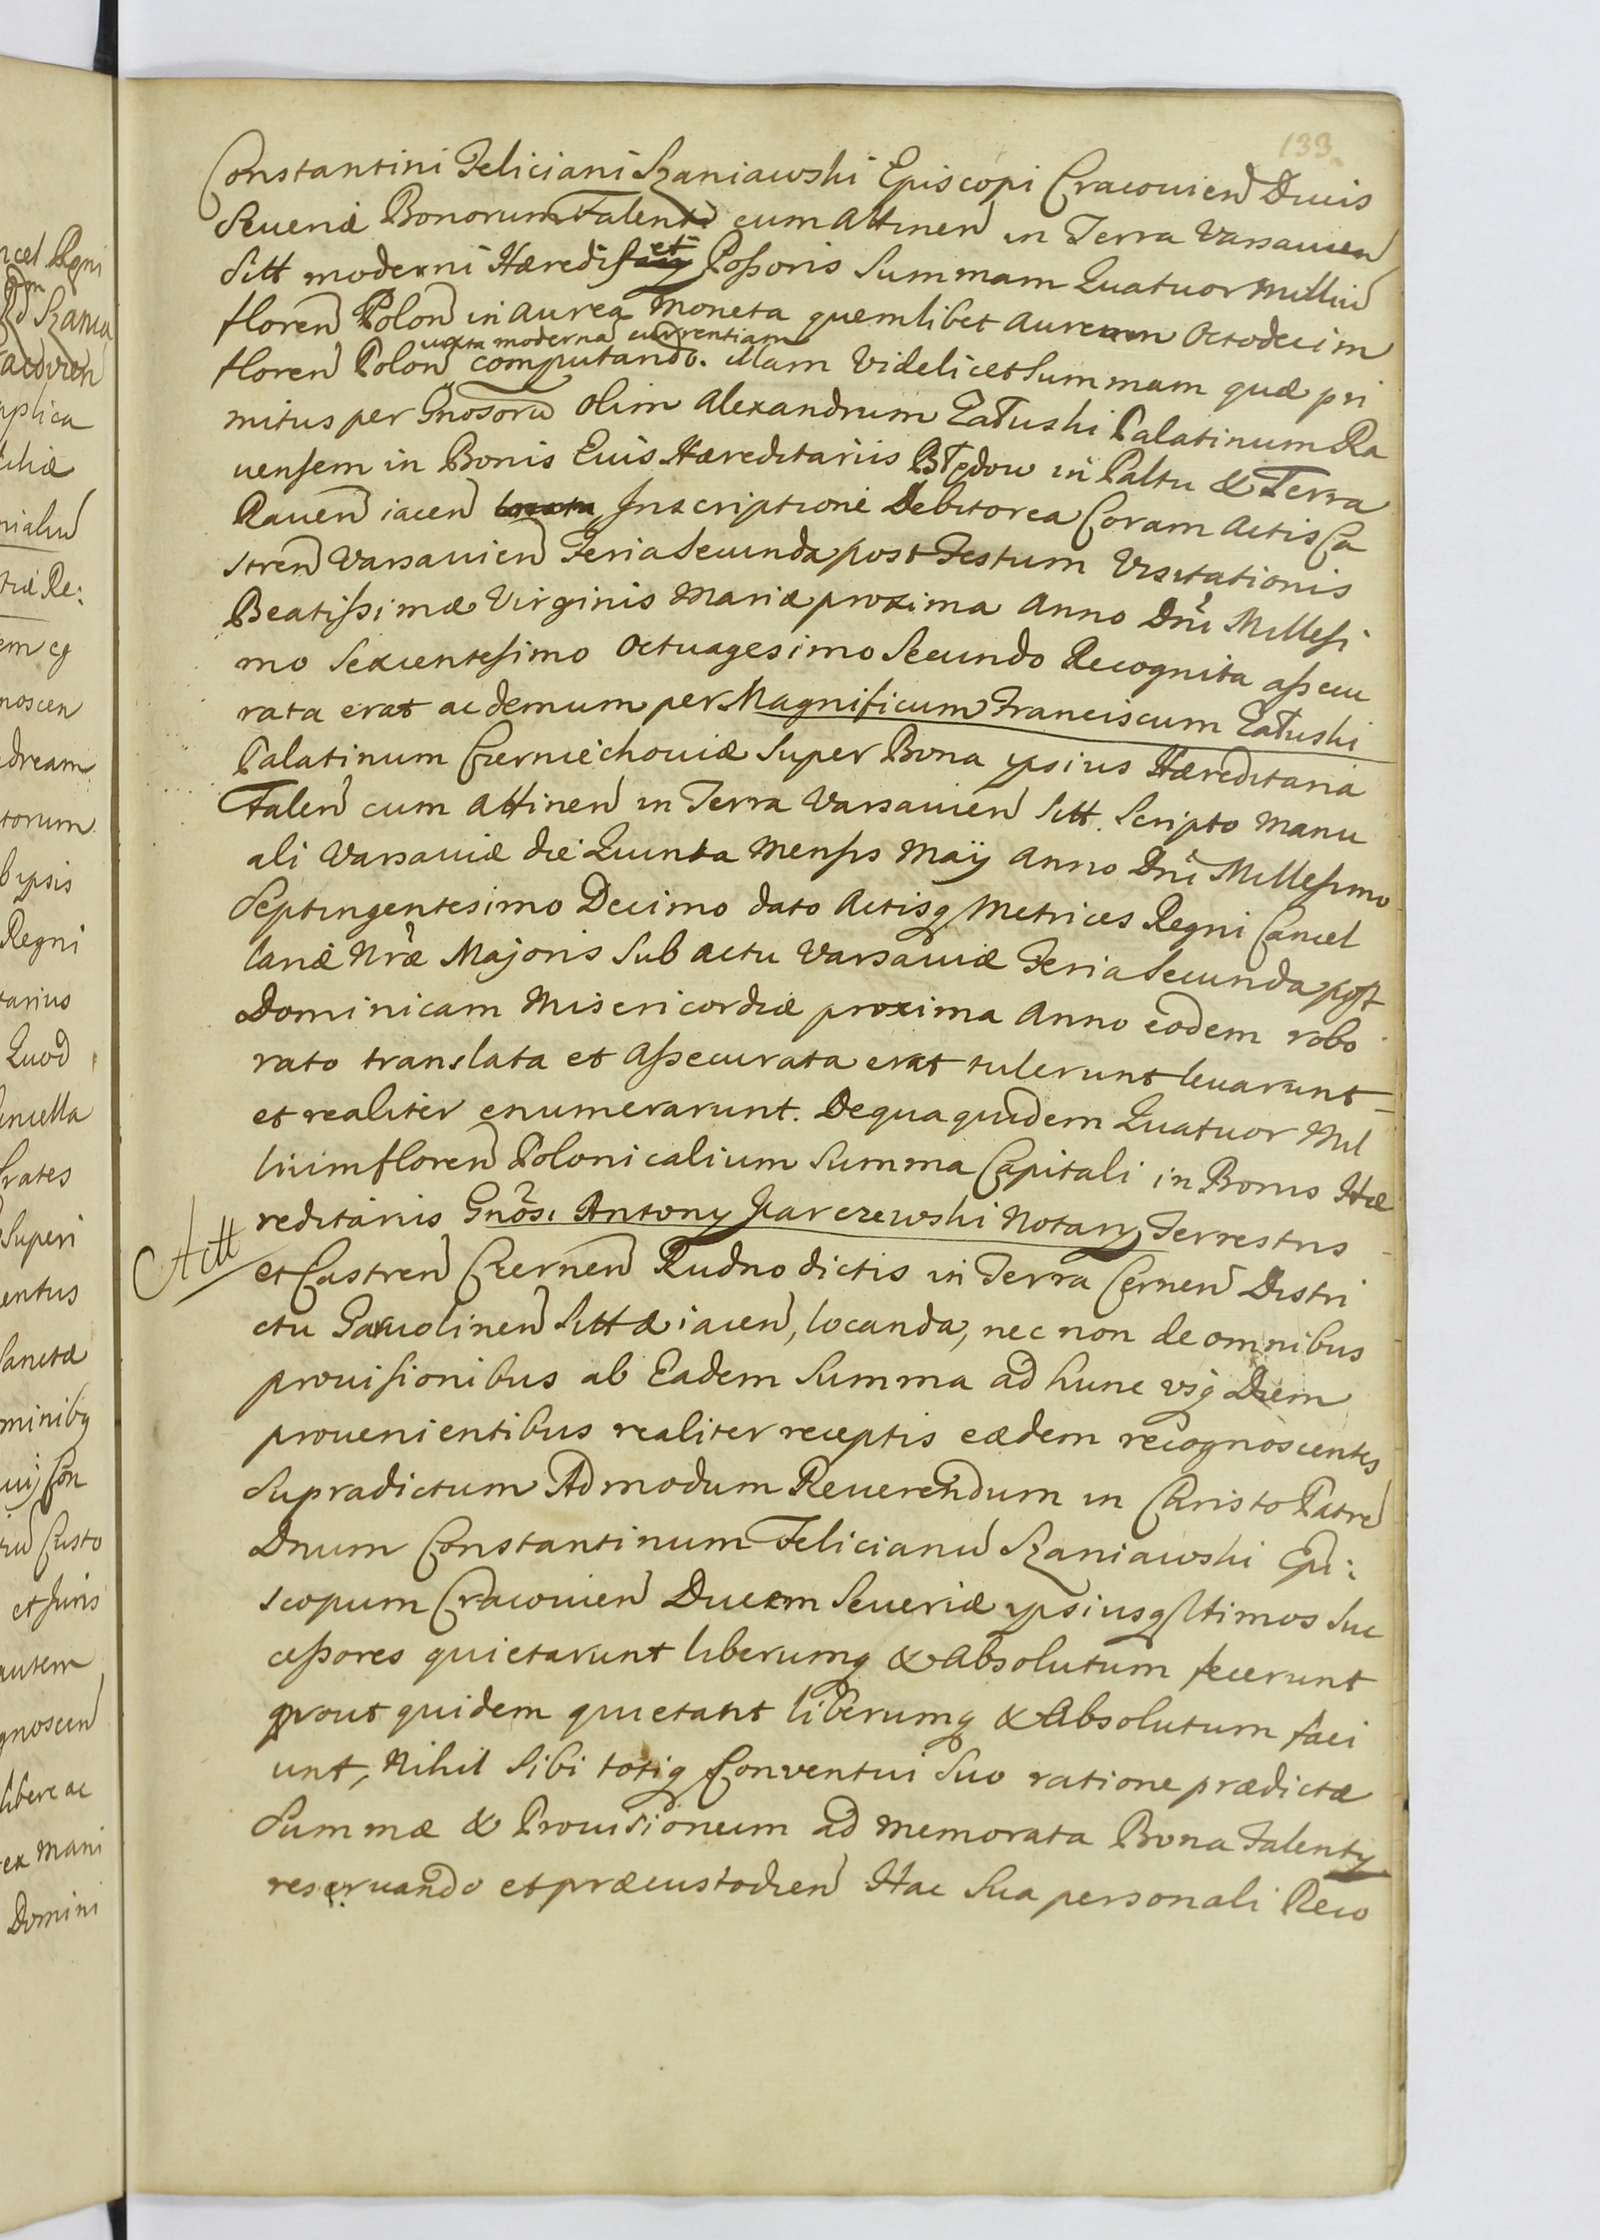 133.
Constantini Feliciani Szaniawski Episcopi Cracovien Ducis
Severiæ Bonorum Falenti cum Attinen in Terra Varsavien
Sitt moderni Hæredis et Possoris Summam Quatuor Milliu
floren Polon in aurea moneta quemlibet aureum Octodecim
iuxta moderna currentiam
floren Polon computando. illam videlicet Summam quæ pri
mitus per Gnosoru olim Alexandrum Załuski Palatinum Ra
vensem in Bonis Eius Hæreditariis Błędow in Paltu & Terra
Raven iacen Inscriptione Debitorea Coram Actis Ca
stren Varsavien Feria Secunda post Festum Visitationis
Beatissimæ Virginis Mariæ proxima Anno Dni Millesi
mo Sexcentesimo Octuagesimo Secundo Recognita assecu
rata erat ac demum per Magnificum Franciscum Załuski
Palatinum Czerniechoviæ super Bona ipsius Hæreditaria
Falen cum Attinen in Terra Varsavien Sitt. Scripto manu
ali Varsaviæ die Quinta Mensis Maij Anno Dni Millesimo
Septingentesimo Decimo dato Actisq Metrices Regni Cancel
lariæ Nræ Majoris sub actu Varsaviæ Feria Secunda post
Dominicam Misericordiæ proxima Anno eodem robo
rato translata et assecurata erat tulerunt levarunt
et realiter enumerarunt. De qua quidem Quatuor Mil
lium floren Polonicalium Summa Capitali in Bonis Hæ
reditariis Gnosi Antony Karczewski Notary Terrestris
Actt
et Castren Czernen Rudno dictis in Terra Cernen Distri
ctu Garwolinen Sitt & iacen, locanda, nec non de omnibus
provisionibus ab Eadem Summa ad hunc usq Diem
provenientibus realiter receptis eædem recognoscentes
Supradictum Admodum Reverendum in Christo Patre
Dnum Constantinum Felicianu Szaniawski Epi:
scopum Cracovien Ducem Severiæ ipsiusq ltimos Suc
cessores quietarunt liberumq & Absolutum fecerunt
prout quidem quietant liberumq & Absolutum faci
unt, Nihil Sibi totiq Conventui Suo ratione prædictæ
Summæ & Provisioneum ad memorata Bona Falenty
reservando et præcustodien Hac Sua personali Reco